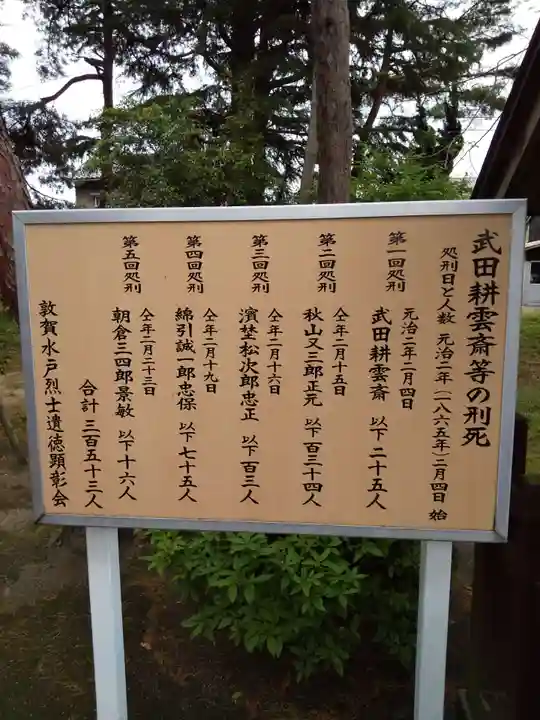 武田耕雲斎等の刑死
処刑日と人数 元治二年(一八六五年)二月四日 始
第一回処刑 元治二年二月四日
武田耕雲斎 以下 二十五人
第二回処刑 仝年二月十五日
秋山又三郎正元 以下 百三十四人
第三回処刑 仝年二月十六日
濱埜松次郎忠正 以下 百三人
第四回処刑 仝年二月十九日
綿引誠一郎忠保 以下 七十五人
第五回処刑 仝年二月二十三日
朝倉三四郎景敏 以下 十六人
合計 三百五十三人
敦賀水戸烈士遺徳顕彰会